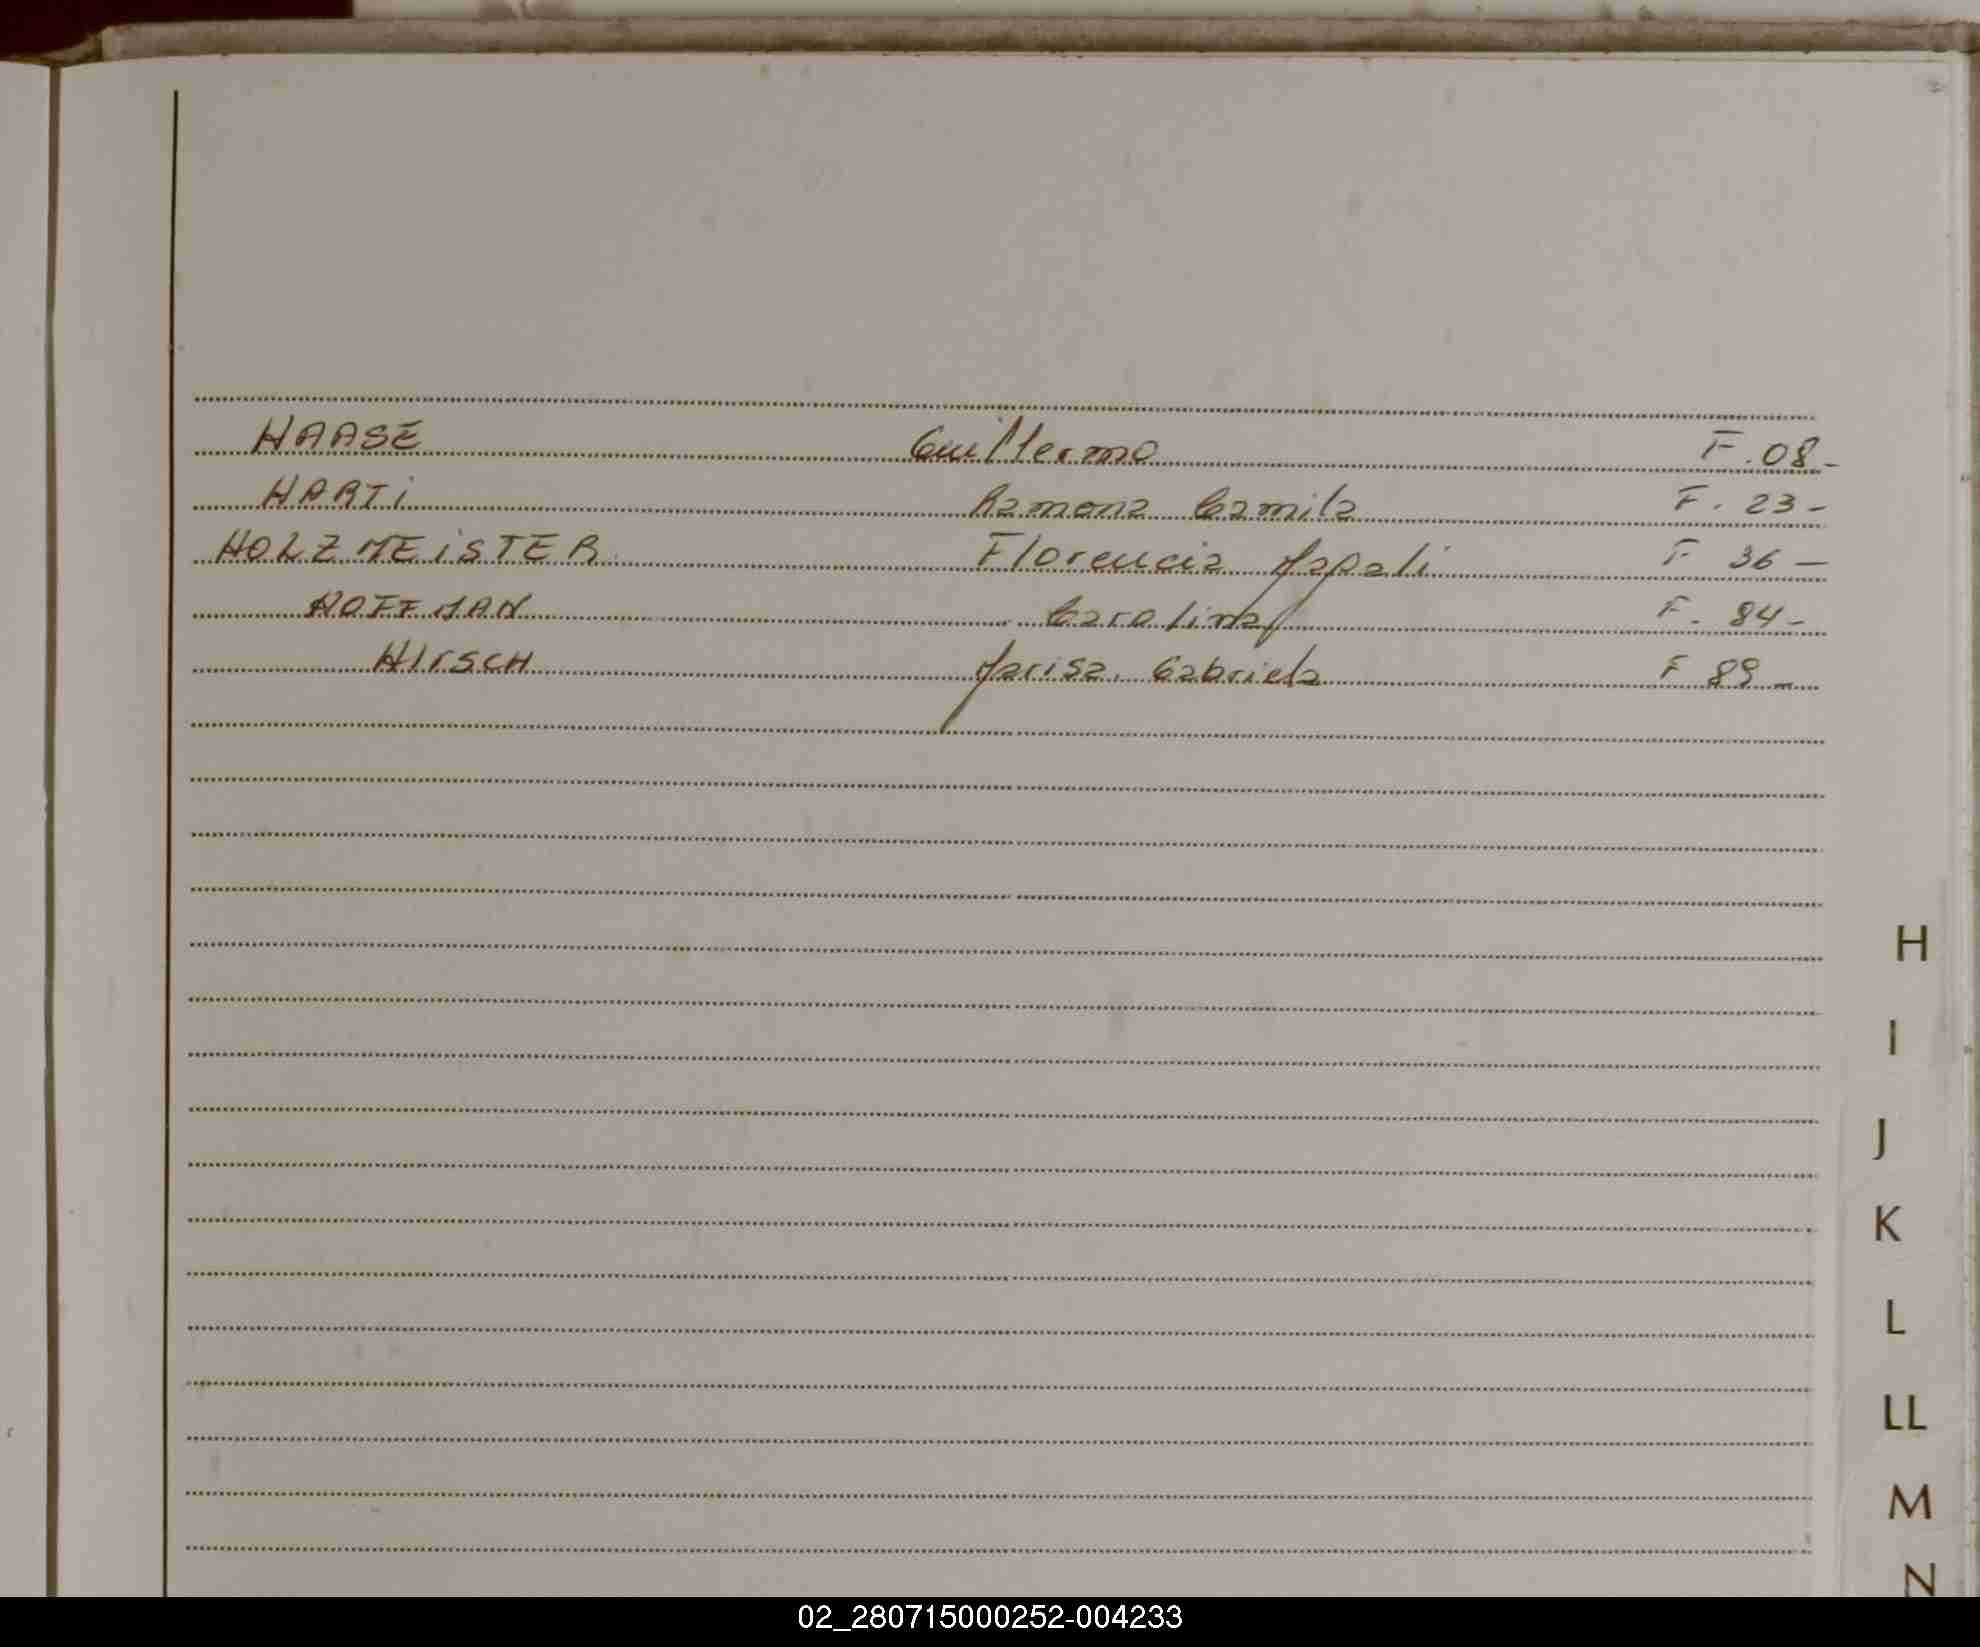 HAASE Guillermo F. 08-
HARTi Ramona Camila F. 23-
HOLZMEiSTER Florencia Magali F 36-
HOFFMAN Carolina F. 84-
HIrSCH Marisa Gabriela F 89-
H
I
J
K
L
LL
M
N
02_280715000252-004233